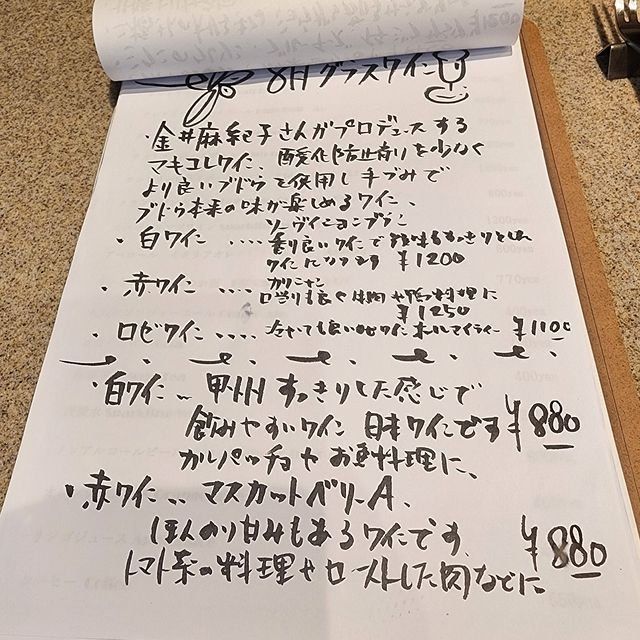 8月グラスワイン
・金井麻紀子さんがプロデュースする
マキコレワイン、酸化防止剤を少なく
より良いブドウを使用し手づみで
ブドウ本来の味が楽しめるワイン、
ソーヴィニョンブラン
・白ワイン ‥‥ 香り良いワインで 後味もすっきりとした
ワインになってます ¥1200
・赤ワイン ‥‥ カリニャン
口当りも良く お肉や鴨料理に
¥1250
・ロゼワイン ‥‥ 冷やても良い ¥1100
・白ワイン ‥ 甲州 すっきりした感じで
飲みやすいワイン 日本ワインです ¥880
カルパッチョや お魚料理に、
・赤ワイン ‥ マスカットベリーA、
ほんのり甘みもあるワインです、
トマト系の料理やローストした肉などに ¥880